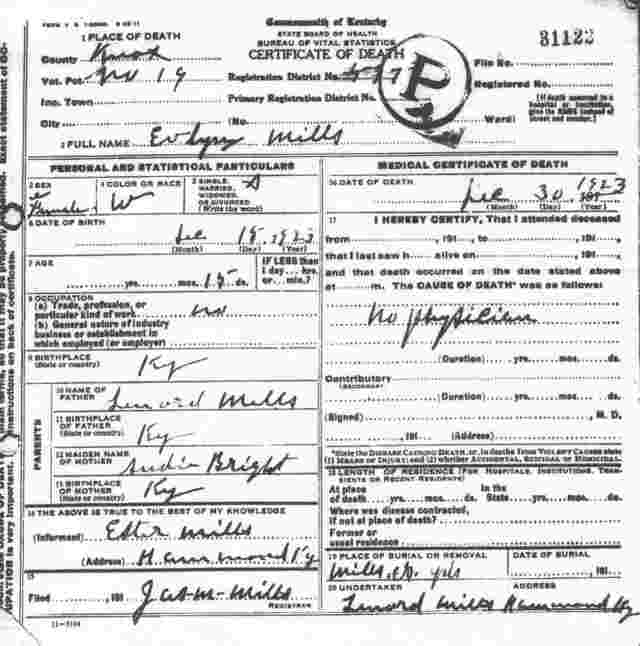 Commonwealth of Kentucky
STATE BOARD OF HEALTH
BUREAU OF VITAL STATISTICS
CERTIFICATE OF DEATH
31122
1 PLACE OF DEATH
County Knox
Vot. Pct. No 19
Registration District No.
File No.
Inc. Town
Primary Registration District No.
Registered No.
City
(No.
Ward)
[If death occurred in a hospital or institution, give its NAME instead of street and number.]
P
2 FULL NAME Evelyn Mills
PERSONAL AND STATISTICAL PARTICULARS
2 SEX Female
4 COLOR OR RACE W
5 SINGLE, MARRIED, WIDOWED, OR DIVORCED (Write the word) S
6 DATE OF BIRTH
Dec 15 1923
(Month) (Day) (Year)
7 AGE
yrs. mos. 15 ds.
IF LESS than 1 day... hrs. or... min.?
8 OCCUPATION
(a) Trade, profession, or
particular kind of work no
(b) General nature of industry
business or establishment in
which employed (or employer)
9 BIRTHPLACE
(State or country) Ky
PARENTS
10 NAME OF
FATHER Lenord Mills
11 BIRTHPLACE
OF FATHER
(State or country) Ky
12 MAIDEN NAME
OF MOTHER Bright
13 BIRTHPLACE
OF MOTHER
(State or country) Ky
14 THE ABOVE IS TRUE TO THE BEST OF MY KNOWLEDGE
(Informed) Ester Mills
(Address) Hammond Ky
15
Filed , 191 Jas. M. Mills
REGISTRAR
11-3184
MEDICAL CERTIFICATE OF DEATH
16 DATE OF DEATH
Dec 30 1923
(Month) (Day) (Year)
17 I HEREBY CERTIFY, That I attended deceased
from , 191 , to , 191 ,
that I last saw h alive on , 191 ,
and that death occurred on the date stated above
at m. The CAUSE OF DEATH* was as follows:
No physician
(Duration) yrs. mos. ds.
Contributory
(SECONDARY)
(Duration) yrs. mos. ds.
(Signed) , M. D.
, 191 (Address)
*State the DISEASE CAUSING DEATH, or, in deaths from VIOLENT CAUSES state (1) MEANS OF INJURY; and (2) whether ACCIDENTAL, SUICIDAL or HOMICIDAL.
18 LENGTH OF RESIDENCE (FOR HOSPITALS, INSTITUTIONS, TRANSIENTS OR RECENT RESIDENTS)
At place of death yrs. mos. ds. In the State yrs. mos. ds.
Where was disease contracted,
if not at place of death?
Former or
usual residence
19 PLACE OF BURIAL OR REMOVAL
DATE OF BURIAL
Mills
20 UNDERTAKER
ADDRESS
Lenord Mills Hammond Ky